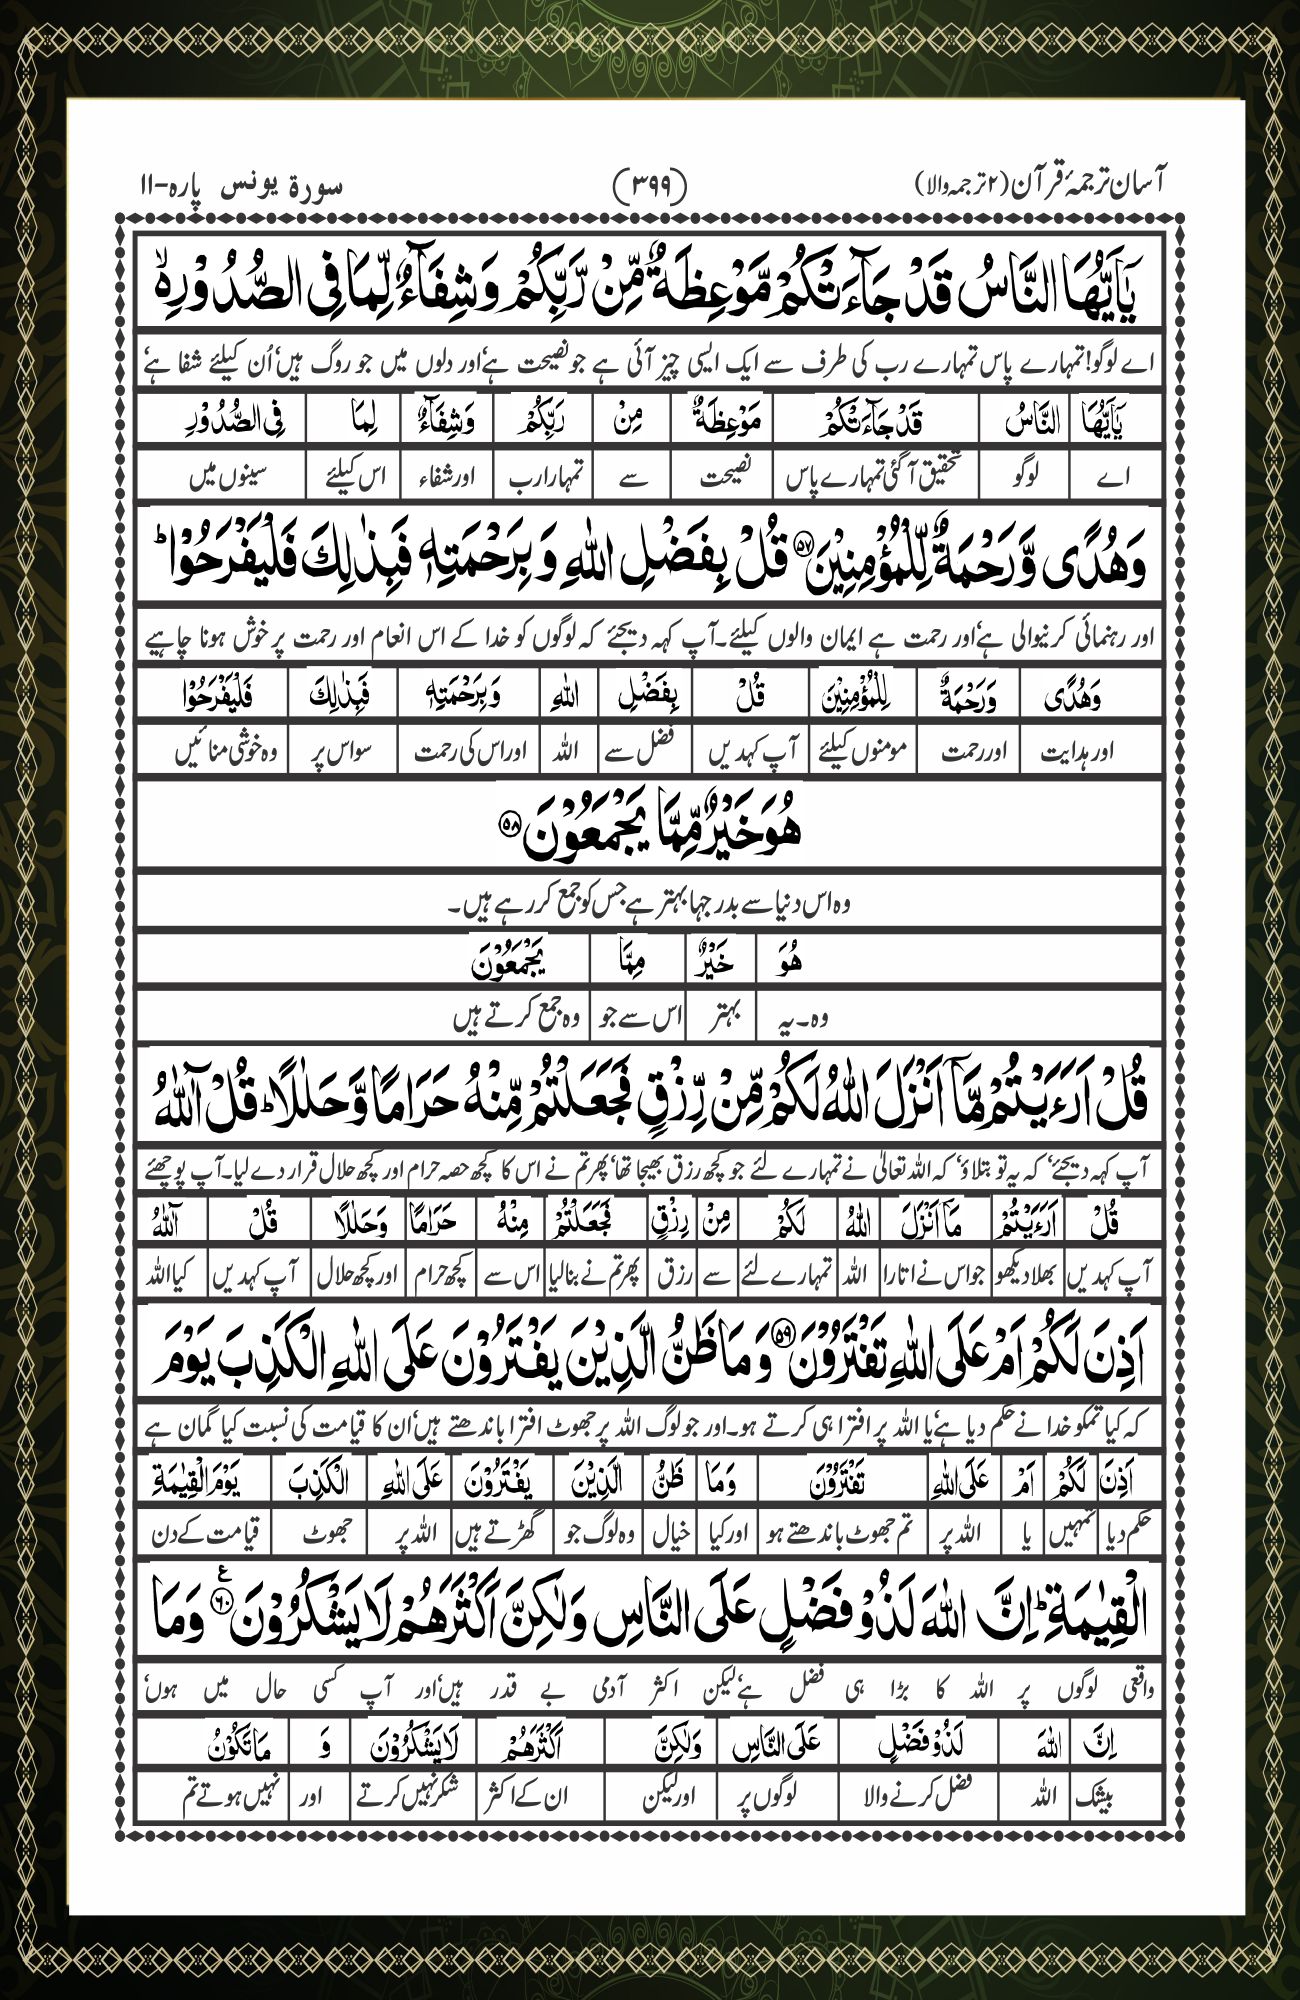 آسان ترجمۂ قرآن (۲ ترجمہ والا) (۳۹۹) سورۃ یونس پارہ-۱۱
يٰۤاَيُّهَا النَّاسُ قَدْ جَآءَتْكُمْ مَّوْعِظَةٌ مِّنْ رَّبِّكُمْ وَشِفَآءٌ لِّمَا فِى الصُّدُوْرِۙ
اے لوگو! تمہارے پاس تمہارے رب کی طرف سے ایک ایسی چیز آئی ہے جو نصیحت ہے٬ اور دلوں میں جو روگ ہیں٬ اُن کیلئے شفا ہے٬
يٰۤاَيُّهَا النَّاسُ قَدْ جَآءَتْكُمْ مَوْعِظَةٌ مِنْ رَبِّكُمْ وَشِفَآءٌ لِمَا فِى الصُّدُوْرِ
اے لوگو تحقیق آ گئی تمہارے پاس نصیحت سے تمہارا رب اور شفاء اس کیلئے سینوں میں
وَهُدًى وَّرَحْمَةٌ لِّلْمُؤْمِنِيْنَ ۵۷ قُلْ بِفَضْلِ اللّٰهِ وَبِرَحْمَتِهٖ فَبِذٰلِكَ فَلْيَفْرَحُوْاؕ
اور رہنمائی کرنیوالی ہے٬ اور رحمت ہے ایمان والوں کیلئے۔ آپ کہہ دیجئے کہ لوگوں کو خدا کے اس انعام اور رحمت پر خوش ہونا چاہیے
وَهُدًى وَرَحْمَةٌ لِلْمُؤْمِنِيْنَ قُلْ بِفَضْلِ اللّٰهِ وَبِرَحْمَتِهٖ فَبِذٰلِكَ فَلْيَفْرَحُوْا
اور ہدایت اور رحمت مومنوں کیلئے آپ کہدیں فضل سے اللہ اور اس کی رحمت سو اس پر وہ خوشی منائیں
هُوَ خَيْرٌ مِّمَّا يَجْمَعُوْنَ ۵۸
وہ اس دنیا سے بدرجہا بہتر ہے جس کو جمع کر رہے ہیں۔
هُوَ خَيْرٌ مِمَّا يَجْمَعُوْنَ
وہ۔یہ بہتر اس سے جو وہ جمع کرتے ہیں
قُلْ اَرَءَيْتُمْ مَّاۤ اَنْزَلَ اللّٰهُ لَكُمْ مِّنْ رِّزْقٍ فَجَعَلْتُمْ مِّنْهُ حَرَامًا وَّحَلٰلًاؕ قُلْ آٰللّٰهُ
آپ کہہ دیجئے٬ کہ یہ تو بتلاؤ٬ کہ اللہ تعالیٰ نے تمہارے لئے جو کچھ رزق بھیجا تھا٬ پھر تم نے اس کا کچھ حصہ حرام اور کچھ حلال قرار دے لیا۔ آپ پوچھئے
قُلْ اَرَءَيْتُمْ مَاۤ اَنْزَلَ اللّٰهُ لَكُمْ مِنْ رِزْقٍ فَجَعَلْتُمْ مِنْهُ حَرَامًا وَحَلٰلًا قُلْ آٰللّٰهُ
آپ کہدیں بھلا دیکھو جو اس نے اتارا اللہ تمہارے لئے سے رزق پھر تم نے بنا لیا اس سے کچھ حرام اور کچھ حلال آپ کہدیں کیا اللہ
اَذِنَ لَكُمْ اَمْ عَلَى اللّٰهِ تَفْتَرُوْنَ ۵۹ وَمَا ظَنُّ الَّذِيْنَ يَفْتَرُوْنَ عَلَى اللّٰهِ الْكَذِبَ يَوْمَ
کہ کیا تمکو خدا نے حکم دیا ہے٬ یا اللہ پر افترا ہی کرتے ہو۔ اور جو لوگ اللہ پر جھوٹ افترا باندھتے ہیں٬ ان کا قیامت کی نسبت کیا گمان ہے
اَذِنَ لَكُمْ اَمْ عَلَى اللّٰهِ تَفْتَرُوْنَ وَمَا ظَنُّ الَّذِيْنَ يَفْتَرُوْنَ عَلَى اللّٰهِ الْكَذِبَ يَوْمَ الْقِيٰمَةِ
حکم دیا تمہیں یا اللہ پر تم جھوٹ باندھتے ہو اور کیا خیال وہ لوگ جو گھڑتے ہیں اللہ پر جھوٹ قیامت کے دن
الْقِيٰمَةِؕ اِنَّ اللّٰهَ لَذُوْ فَضْلٍ عَلَى النَّاسِ وَلٰكِنَّ اَكْثَرَهُمْ لَا يَشْكُرُوْنَ ۶۰ ع وَمَا
واقعی لوگوں پر اللہ کا بڑا ہی فضل ہے٬ لیکن اکثر آدمی بے قدر ہیں٬ اور آپ کسی حال میں ہوں٬
اِنَّ اللّٰهَ لَذُوْ فَضْلٍ عَلَى النَّاسِ وَلٰكِنَّ اَكْثَرَهُمْ لَا يَشْكُرُوْنَ وَ مَا تَكُوْنُ
بیشک اللہ فضل کرنے والا لوگوں پر اور لیکن ان کے اکثر شکر نہیں کرتے اور نہیں ہوتے تم